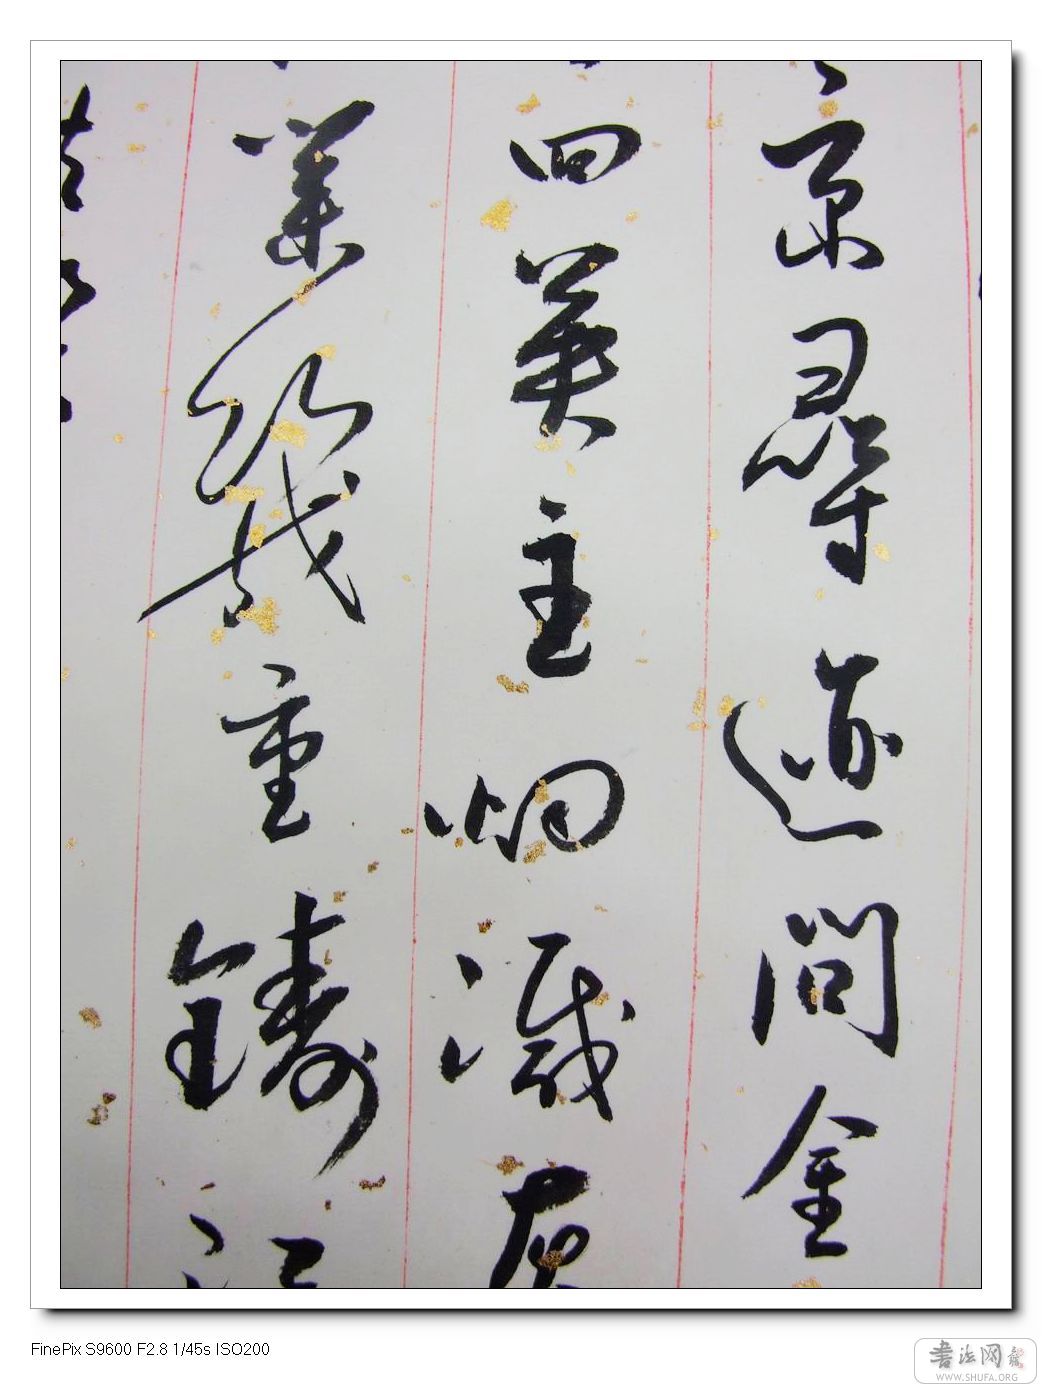 京尋迹問金
回英主烟滅
業幾重鑄江
FinePix S9600 F2.8 1/45s ISO200
書法网
WWW.SHUFA.ORG